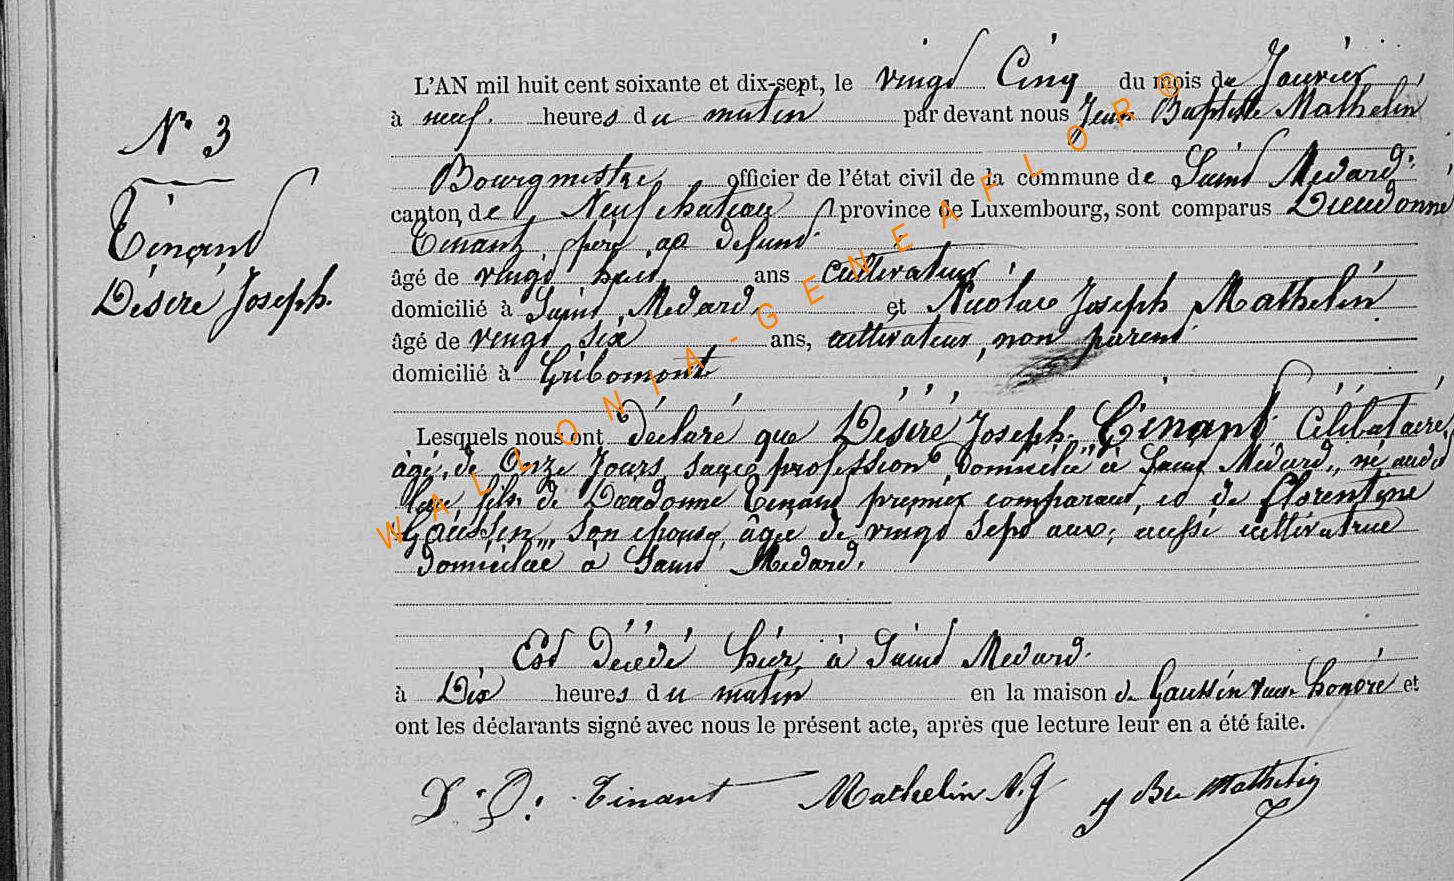 L'AN mil huit cent soixante et dix-sept, le vingt Cinq du mois de Janvier
à neuf heures du matin par devant nous Jean Baptiste Mathelin
Bourgmestre officier de l'état civil de la commune de Saint Médard
canton de Neufchateau province de Luxembourg, sont comparus Dieudonné
Tinant, père au défunt
âgé de vingt huit ans cultivateur
domicilié à Saint Médard et Nicolas Joseph Mathelin
âgé de vingt six ans, cultivateur, non parent
domicilié à Gribomont
Lesquels nous ont déclaré que Désiré Joseph Tinant Célibataire,
âgé de Onze Jours sans profession, domicilié à Saint Médard, né audit
lieu fils de Dieudonné Tinant premier comparant, et de florentine
Gaussin, son épouse, âgée de vingt sept ans, aussi cultivatrice
domiciliée à Saint Médard.
Est Décédé hier, à Saint Médard.
à Dix heures du matin en la maison de Gaussin Honoré et
ont les déclarants signé avec nous le présent acte, après que lecture leur en a été faite.
D. Tinant Mathelin N.J J Bte Mathelin
N° 3
Tinant
Désiré Joseph.
WALLONIA-GENEAFLOR®